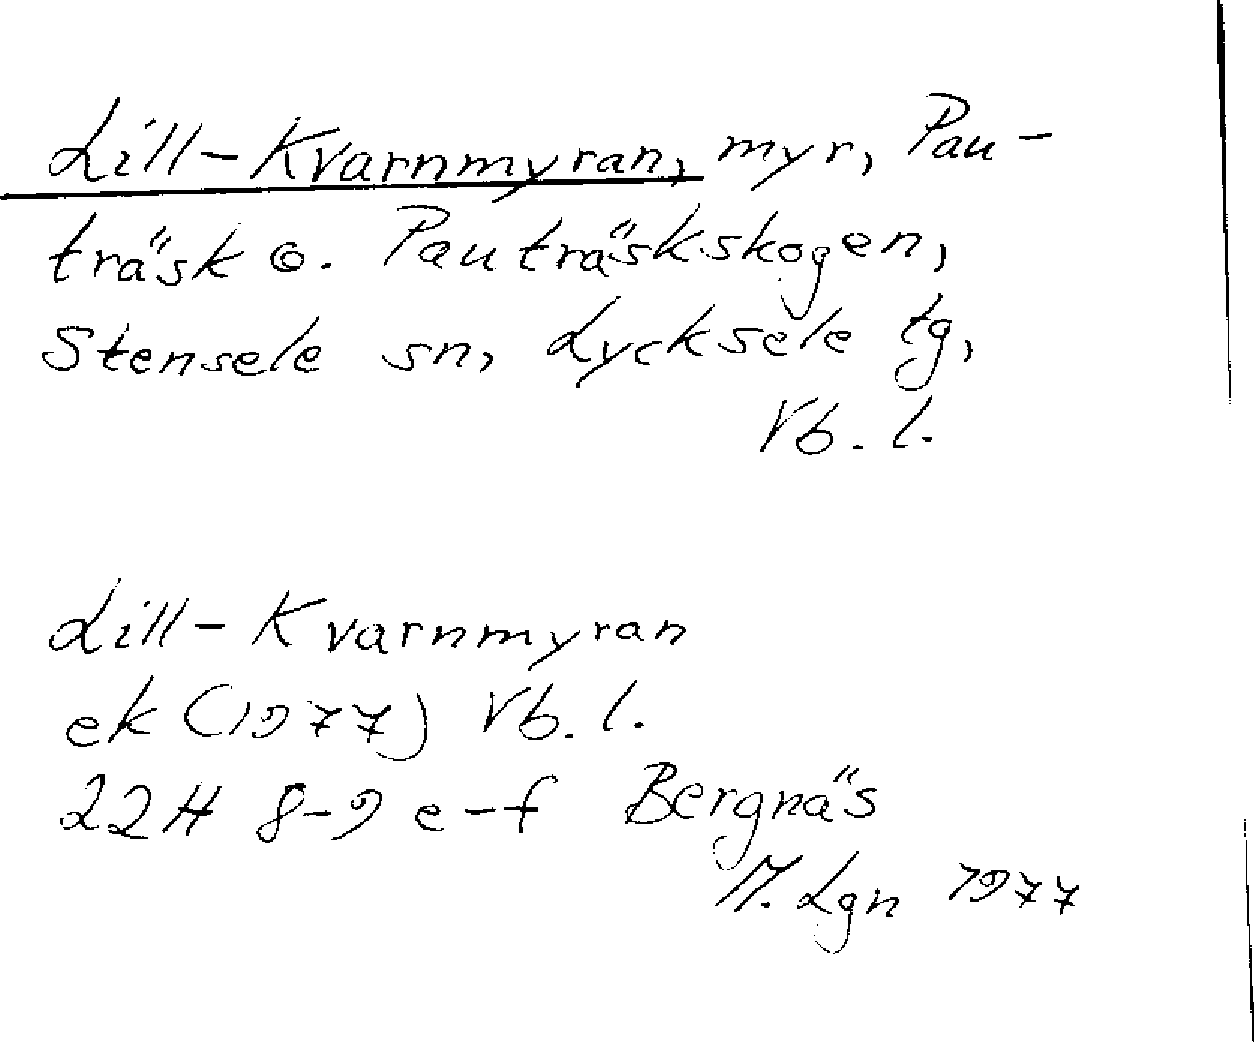 Lill-Kvarnmyran, myr, Pau-
träsk o. Pauträskskogen,
Stensele sn, Lycksele tg,
Vb. l.
Lill-Kvarnmyran
ek (1977) Vb. l.
22H 8-9 e-f Bergnäs
M. Lgn 1977